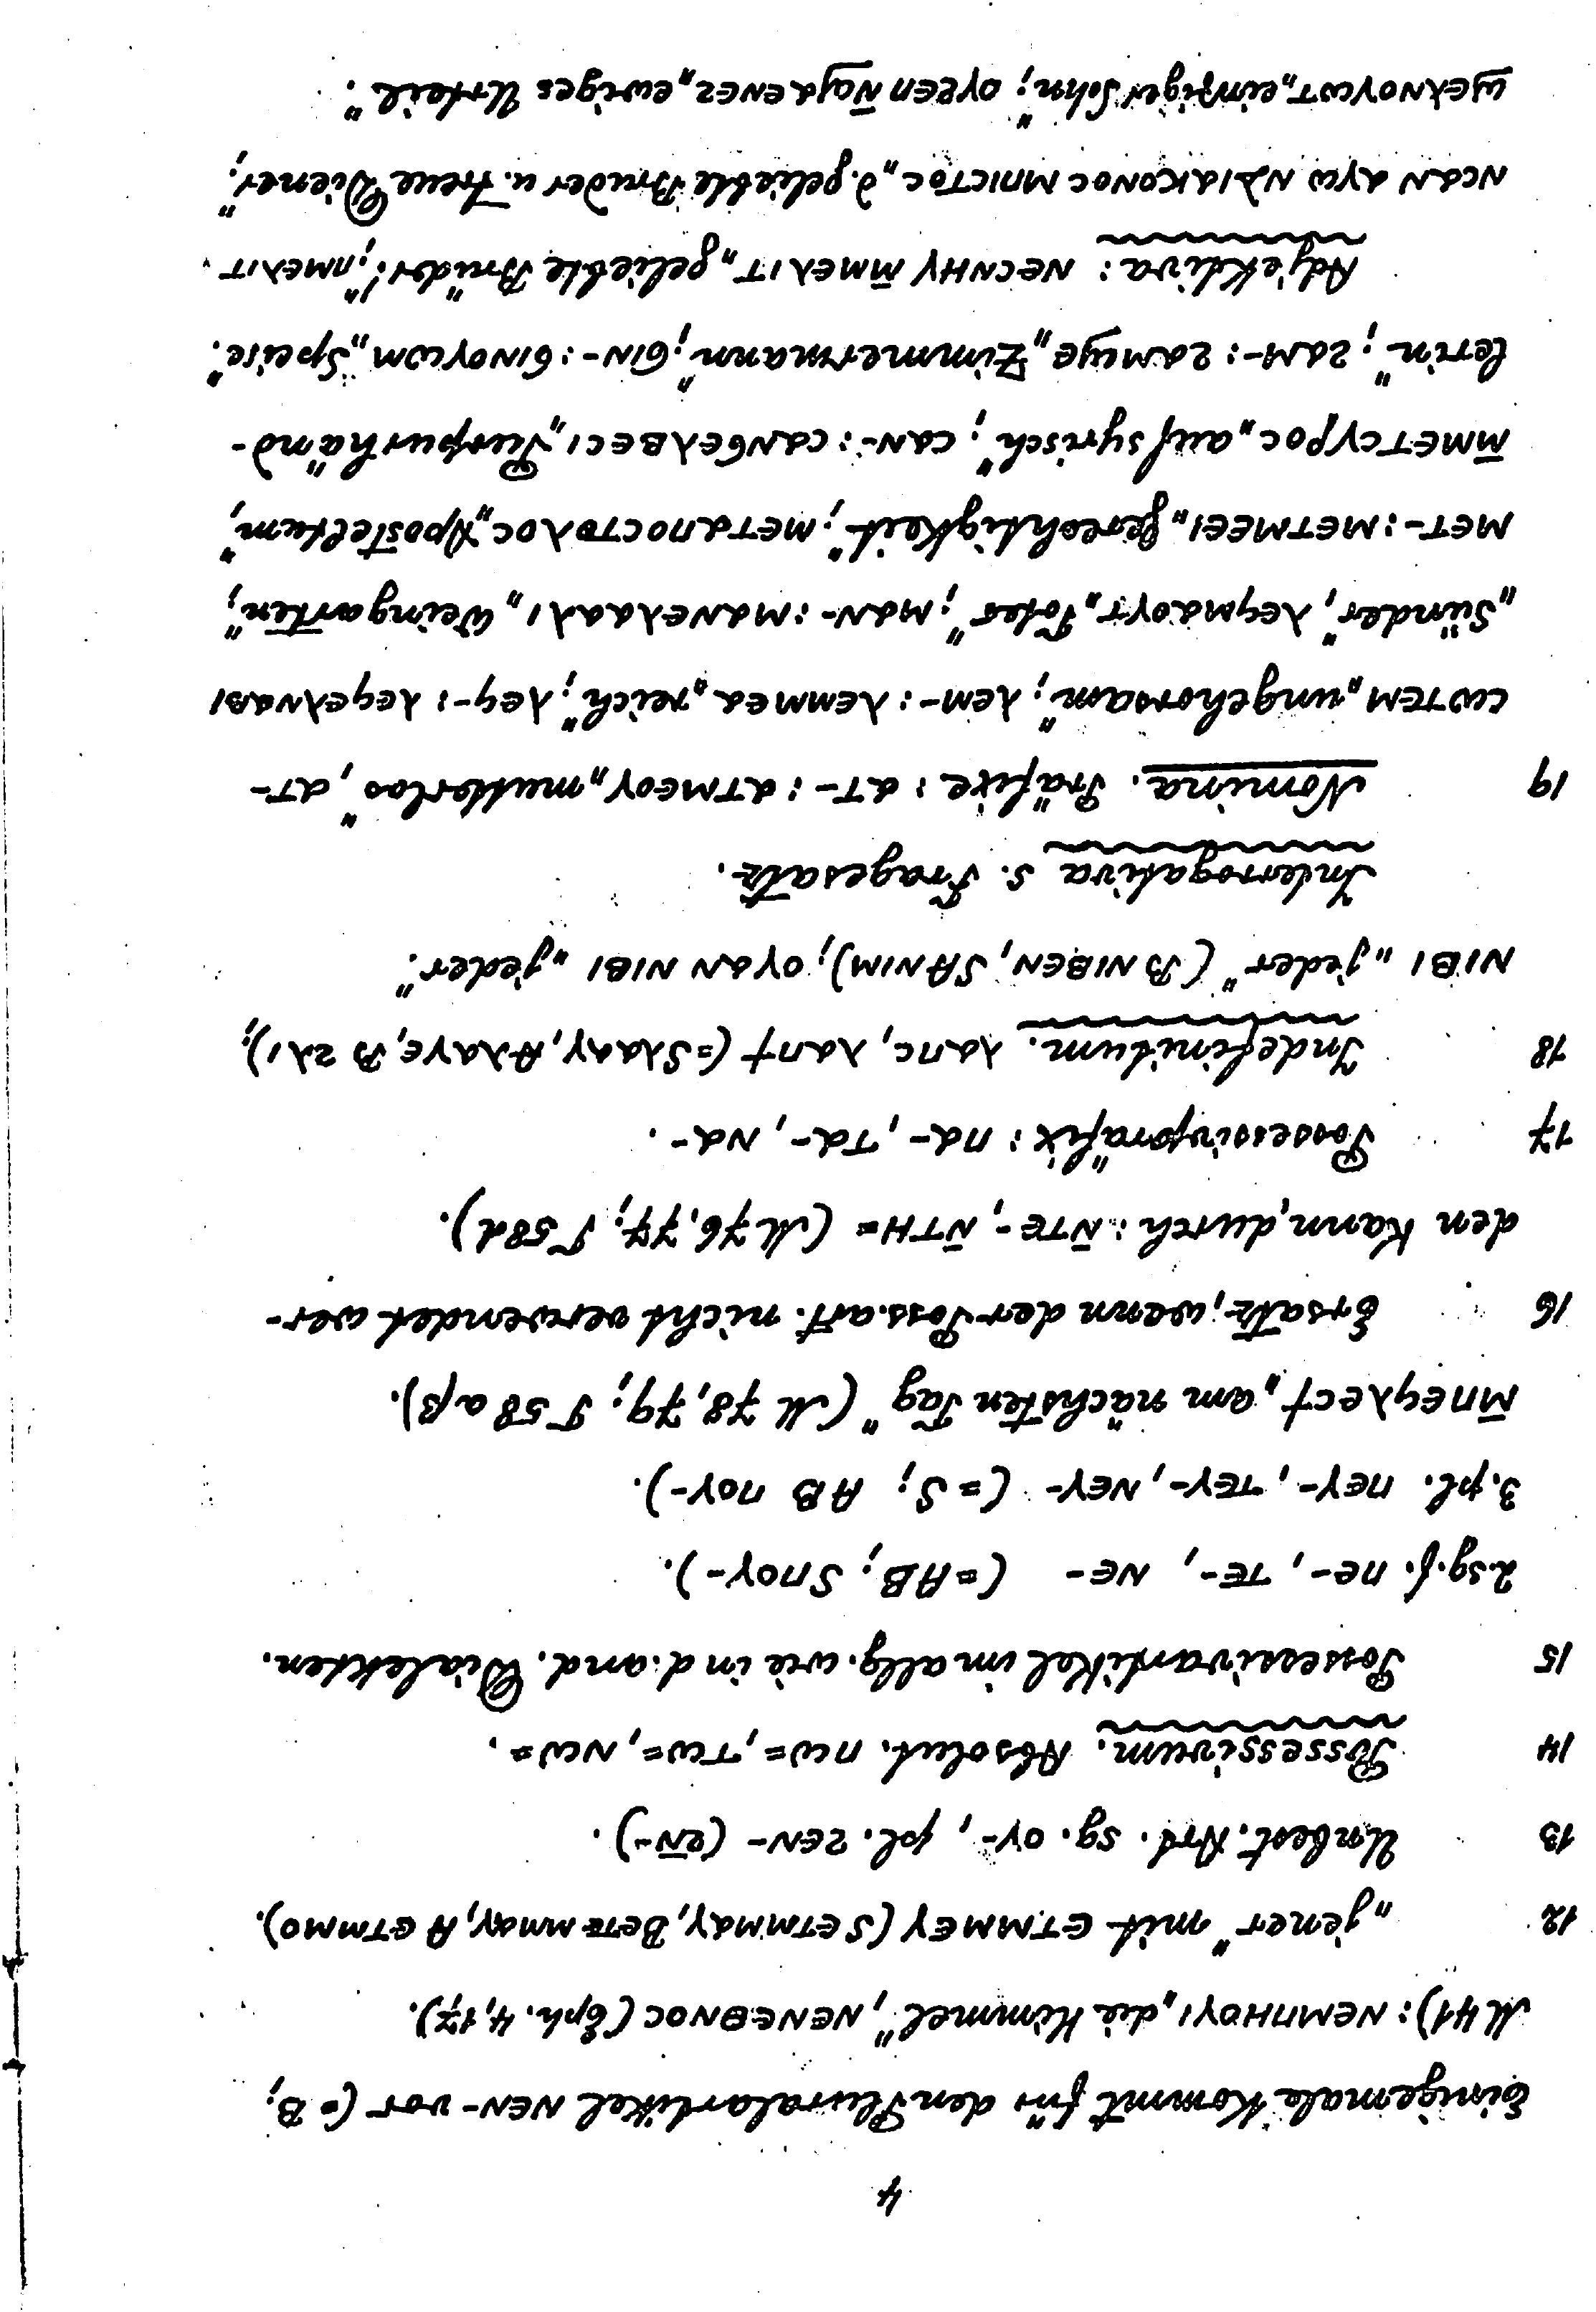 4
Einigemale kommt für den Pluralartikel ⲛⲉⲛ- vor (= B;
M 41): ⲛⲉⲙⲡⲏⲟⲩⲓ „die Himmel", ⲛⲉⲛⲉⲑⲛⲟⲥ (Eph. 4,17).
12 „jener" mit ⲉⲧⲙⲙⲉⲩ (S ⲉⲧⲙⲙⲁⲩ, B ⲉⲧⲉⲙⲙⲁⲩ, A ⲉⲧⲙⲙⲟ).
13 Unbest. Art. sg. ⲟⲩ-, pl. ϩⲉⲛ- (ϩⲛ̄-).
14 Possessivum. Absolut. ⲡⲱ=, ⲧⲱ=, ⲛⲱ=.
15 Possessivartikel im allg. wie in d. and. Dialekten.
2.sg.f. ⲡⲉ-, ⲧⲉ-, ⲛⲉ- (= AB; S ⲡⲟⲩ-).
3.pl. ⲡⲉⲩ-, ⲧⲉⲩ-, ⲛⲉⲩ- (= S; AB ⲡⲟⲩ-).
ⲙ̄ⲡⲉϥⲗⲉⲥϯ „am nächsten Tag" (M 78,79; T 58 aβ).
16 Ersatz, wenn der Poss.art. nicht verwendet wer-
den kann, durch: ⲛ̄ⲧⲉ-, ⲛ̄ⲧⲏ= (M 76,77; T 58d).
17 Possessivpräfix: ⲡⲁ-, ⲧⲁ-, ⲛⲁ-.
18 Indefinitum. ⲗⲁⲡⲥ, ⲗⲁⲡϯ (= S ⲗⲁⲁⲩ, A ⲗⲁⲩⲉ, B ϩⲗⲓ);
ⲛⲓⲃⲓ „jeder" (B ⲛⲓⲃⲉⲛ, SA ⲛⲓⲙ); ⲟⲩⲁⲛ ⲛⲓⲃⲓ „jeder".
Interrogativa s. Fragesatz.
19 Nomina. Präfixe: ⲁⲧ-: ⲁⲧⲙⲉⲟⲩ „mutterlos", ⲁⲧ-
ⲥⲱⲧⲉⲙ „ungehorsam"; ⲗⲉⲙ-: ⲗⲉⲙⲙⲉⲁ „reich"; ⲗⲉϥ-: ⲗⲉϥⲉⲗⲛⲁⲃⲓ
„Sünder", ⲗⲉϥⲙⲁⲟⲩⲧ „Toter"; ⲙⲁⲛ-: ⲙⲁⲛⲉⲗⲁⲁⲗⲓ „Weingarten";
ⲙⲉⲧ-: ⲙⲉⲧⲙⲉⲉⲓ „Gerechtigkeit"; ⲙⲉⲧⲁⲡⲟⲥⲧⲟⲗⲟⲥ „Aposteltum",
ⲙ̄ⲙⲉⲧⲥⲩⲣⲟⲥ „auf syrisch"; ⲥⲁⲛ-: ⲥⲁⲛϭⲉⲗⲃⲉⲥⲓ „Purpurhänd-
lerin"; ϩⲁⲙ-: ϩⲁⲙϣⲉ „Zimmermann"; ϭⲓⲛ-: ϭⲓⲛⲟⲩⲱⲙ „Speise".
Adjektiva: ⲛⲉⲥⲛⲏⲩ ⲙ̄ⲙⲉⲗⲓⲧ „geliebte Brüder!"; ⲡⲙⲉⲗⲓⲧ
ⲛⲥⲁⲛ ⲁⲩⲱ ⲛⲇⲓⲁⲕⲟⲛⲟⲥ ⲙⲡⲓⲥⲧⲟⲥ „d. geliebte Bruder u. treue Diener";
ϣⲉⲗⲛⲟⲩⲱⲧ „einziger Sohn"; ⲟⲩϩⲉⲡ ⲛ̄ϣⲁⲉⲛⲉϩ „ewiges Urteil".